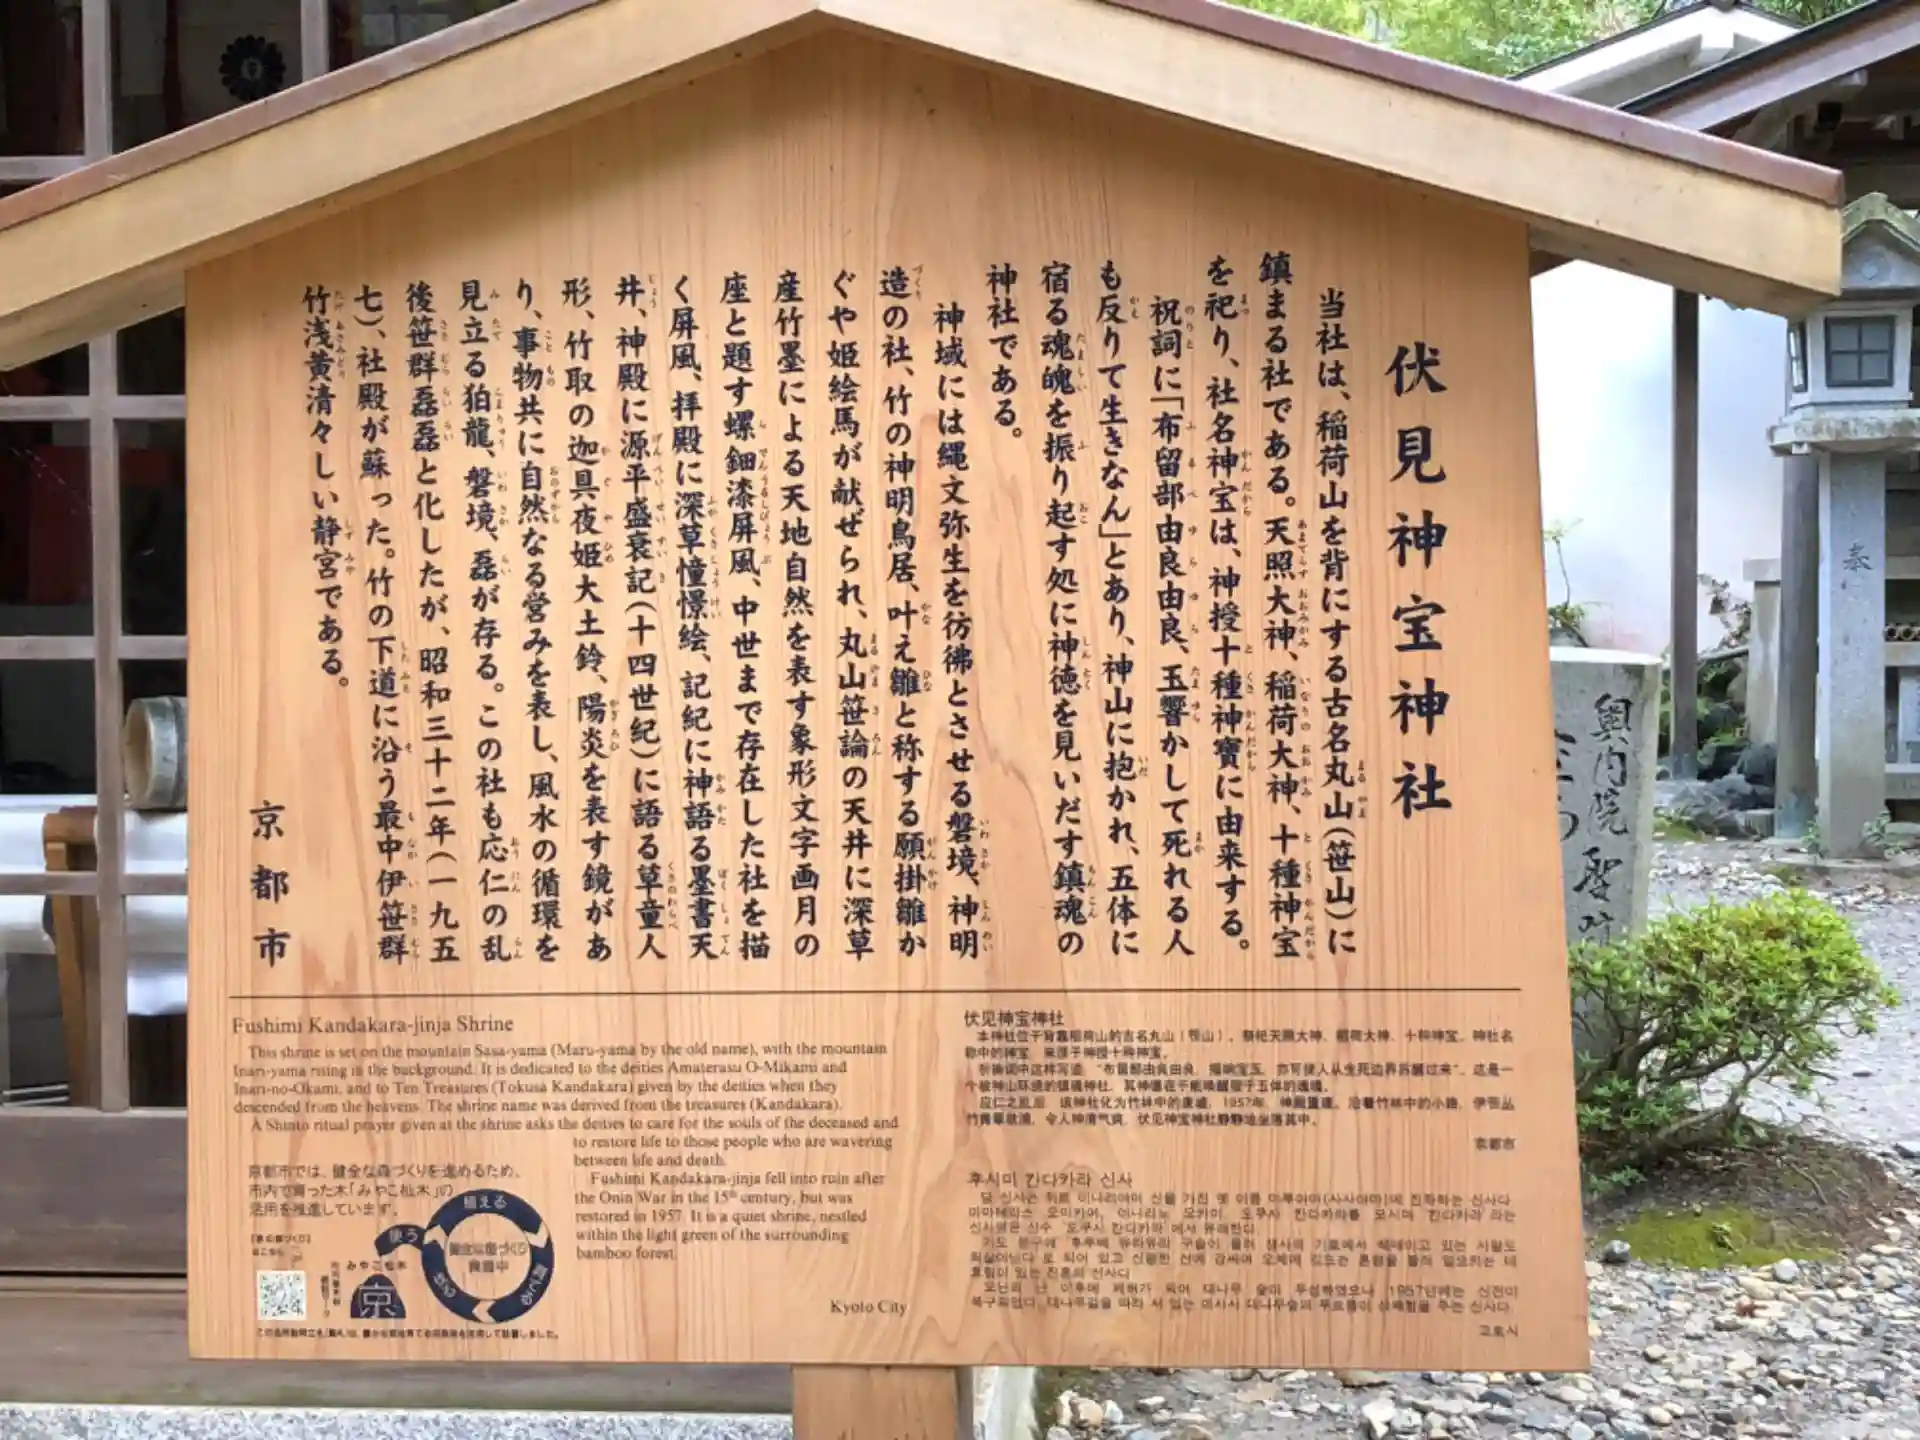 伏見神宝神社
当社は、稲荷山を背にする古名丸山(笹山)に
鎮まる社である。天照大神、稲荷大神、十種神宝
を祀り、社名神宝は、神授十種神寶に由来する。
祝詞に「布留部由良由良、玉響かして死れる人
も反りて生きなん」とあり、神山に抱かれ、五体に
宿る魂魄を振り起す処に神徳を見いだす鎮魂の
神社である。
神域には縄文弥生を彷彿とさせる磐境、神明
造の社、竹の神明鳥居、叶え雛と称する願掛雛か
ぐや姫絵馬が献ぜられ、丸山笹論の天井に深草
産竹墨による天地自然を表す象形文字画月の
座と題す螺鈿漆屏風、中世まで存在した社を描
く屏風、拝殿に深草憧憬絵、記紀に神語る墨書天
井、神殿に源平盛衰記(十四世紀)に語る草童人
形、竹取の迦具夜姫大土鈴、陽炎を表す鏡があ
り、事物共に自然なる営みを表し、風水の循環を
見立る狛龍、磐境、磊が存る。この社も応仁の乱
後笹群磊磊と化したが、昭和三十二年(一九五
七)、社殿が蘇った。竹の下道に沿う最中伊笹群
竹浅黄清々しい静宮である。
京都市
Fushimi Kandakara-jinja Shrine
This shrine is set on the mountain Sasa-yama (Maru-yama by the old name), with the mountain
Inari-yama rising in the background. It is dedicated to the deities Amaterasu O-Mikami and
Inari-no-Okami, and to Ten Treasures (Tokusa Kandakara) given by the deities when they
descended from the heavens. The shrine name was derived from the treasures (Kandakara).
A Shinto ritual prayer given at the shrine asks the deities to care for the souls of the deceased and
to restore life to those people who are wavering
between life and death.
Fushimi Kandakara-jinja fell into ruin after
the Onin War in the 15th century, but was
restored in 1957. It is a quiet shrine, nestled
within the light green of the surrounding
bamboo forest.
Kyoto City
京都市では、健全な森づくりを進めるため、
市内で育った木「みやこ杣木」の
活用を推進しています。
植える
使う
みやこ杣木
京
伏见神宝神社
本神社位于背靠稻荷山的古名丸山（笹山）。祭祀天照大神、稻荷大神、十种神宝。神社名
称中的神宝，来源于神授十种神宝。
京都市
후시미 칸다카라 신사
교토시
奉
奥内院